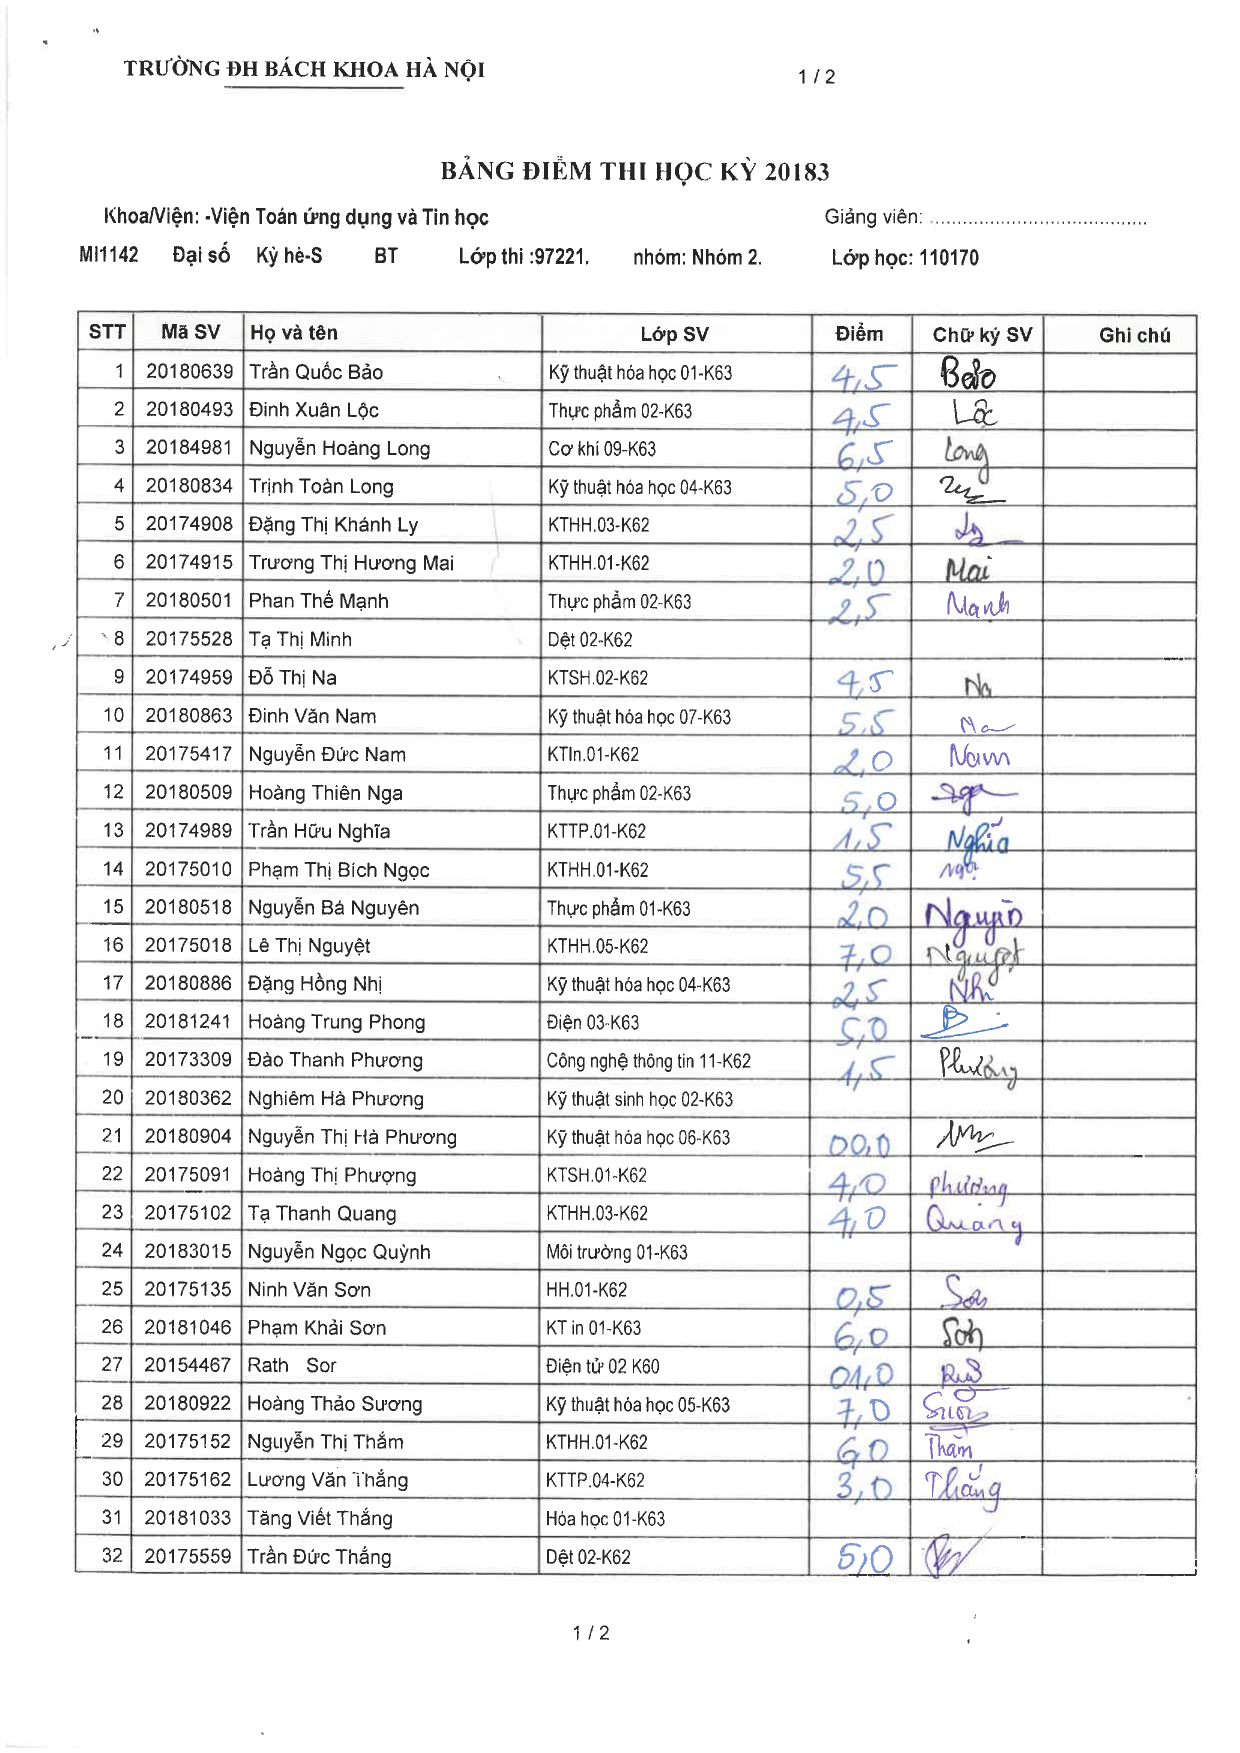 TRƯỜNG ĐH BÁCH KHOA HÀ NỘI 1 / 2
BẢNG ĐIỂM THI HỌC KỲ 20183
Khoa/Viện: -Viện Toán ứng dụng và Tin học Giảng viên: ........................................
MI1142 Đại số Kỳ hè-S BT Lớp thi :97221. nhóm: Nhóm 2. Lớp học: 110170
STT Mã SV Họ và tên Lớp SV Điểm Chữ ký SV Ghi chú
1 20180639 Trần Quốc Bảo Kỹ thuật hóa học 01-K63 4,5 Bảo
2 20180493 Đinh Xuân Lộc Thực phẩm 02-K63 4,5 Lộc
3 20184981 Nguyễn Hoàng Long Cơ khí 09-K63 6,5 Long
4 20180834 Trịnh Toàn Long Kỹ thuật hóa học 04-K63 5,0
5 20174908 Đặng Thị Khánh Ly KTHH.03-K62 2,5 Ly
6 20174915 Trương Thị Hương Mai KTHH.01-K62 2,0 Mai
7 20180501 Phan Thế Mạnh Thực phẩm 02-K63 2,5 Mạnh
8 20175528 Tạ Thị Minh Dệt 02-K62
9 20174959 Đỗ Thị Na KTSH.02-K62 4,5 Na
10 20180863 Đinh Văn Nam Kỹ thuật hóa học 07-K63 5,5
11 20175417 Nguyễn Đức Nam KTIn.01-K62 2,0 Nam
12 20180509 Hoàng Thiên Nga Thực phẩm 02-K63 5,0 Nga
13 20174989 Trần Hữu Nghĩa KTTP.01-K62 1,5 Nghĩa
14 20175010 Phạm Thị Bích Ngọc KTHH.01-K62 5,5 Ngọc
15 20180518 Nguyễn Bá Nguyên Thực phẩm 01-K63 2,0 Nguyên
16 20175018 Lê Thị Nguyệt KTHH.05-K62 7,0 Nguyệt
17 20180886 Đặng Hồng Nhị Kỹ thuật hóa học 04-K63 2,5 Nhị
18 20181241 Hoàng Trung Phong Điện 03-K63 5,0
19 20173309 Đào Thanh Phương Công nghệ thông tin 11-K62 1,5 Phương
20 20180362 Nghiêm Hà Phương Kỹ thuật sinh học 02-K63
21 20180904 Nguyễn Thị Hà Phương Kỹ thuật hóa học 06-K63 00,0
22 20175091 Hoàng Thị Phượng KTSH.01-K62 4,0 Phượng
23 20175102 Tạ Thanh Quang KTHH.03-K62 4,0 Quang
24 20183015 Nguyễn Ngọc Quỳnh Môi trường 01-K63
25 20175135 Ninh Văn Sơn HH.01-K62 0,5 Sơn
26 20181046 Phạm Khải Sơn KT in 01-K63 6,0 Sơn
27 20154467 Rath Sor Điện tử 02 K60 01,0
28 20180922 Hoàng Thảo Sương Kỹ thuật hóa học 05-K63 7,0 Sương
29 20175152 Nguyễn Thị Thắm KTHH.01-K62 6,0 Thắm
30 20175162 Lương Văn Thắng KTTP.04-K62 3,0 Thắng
31 20181033 Tăng Viết Thắng Hóa học 01-K63
32 20175559 Trần Đức Thắng Dệt 02-K62 5,0
1 / 2